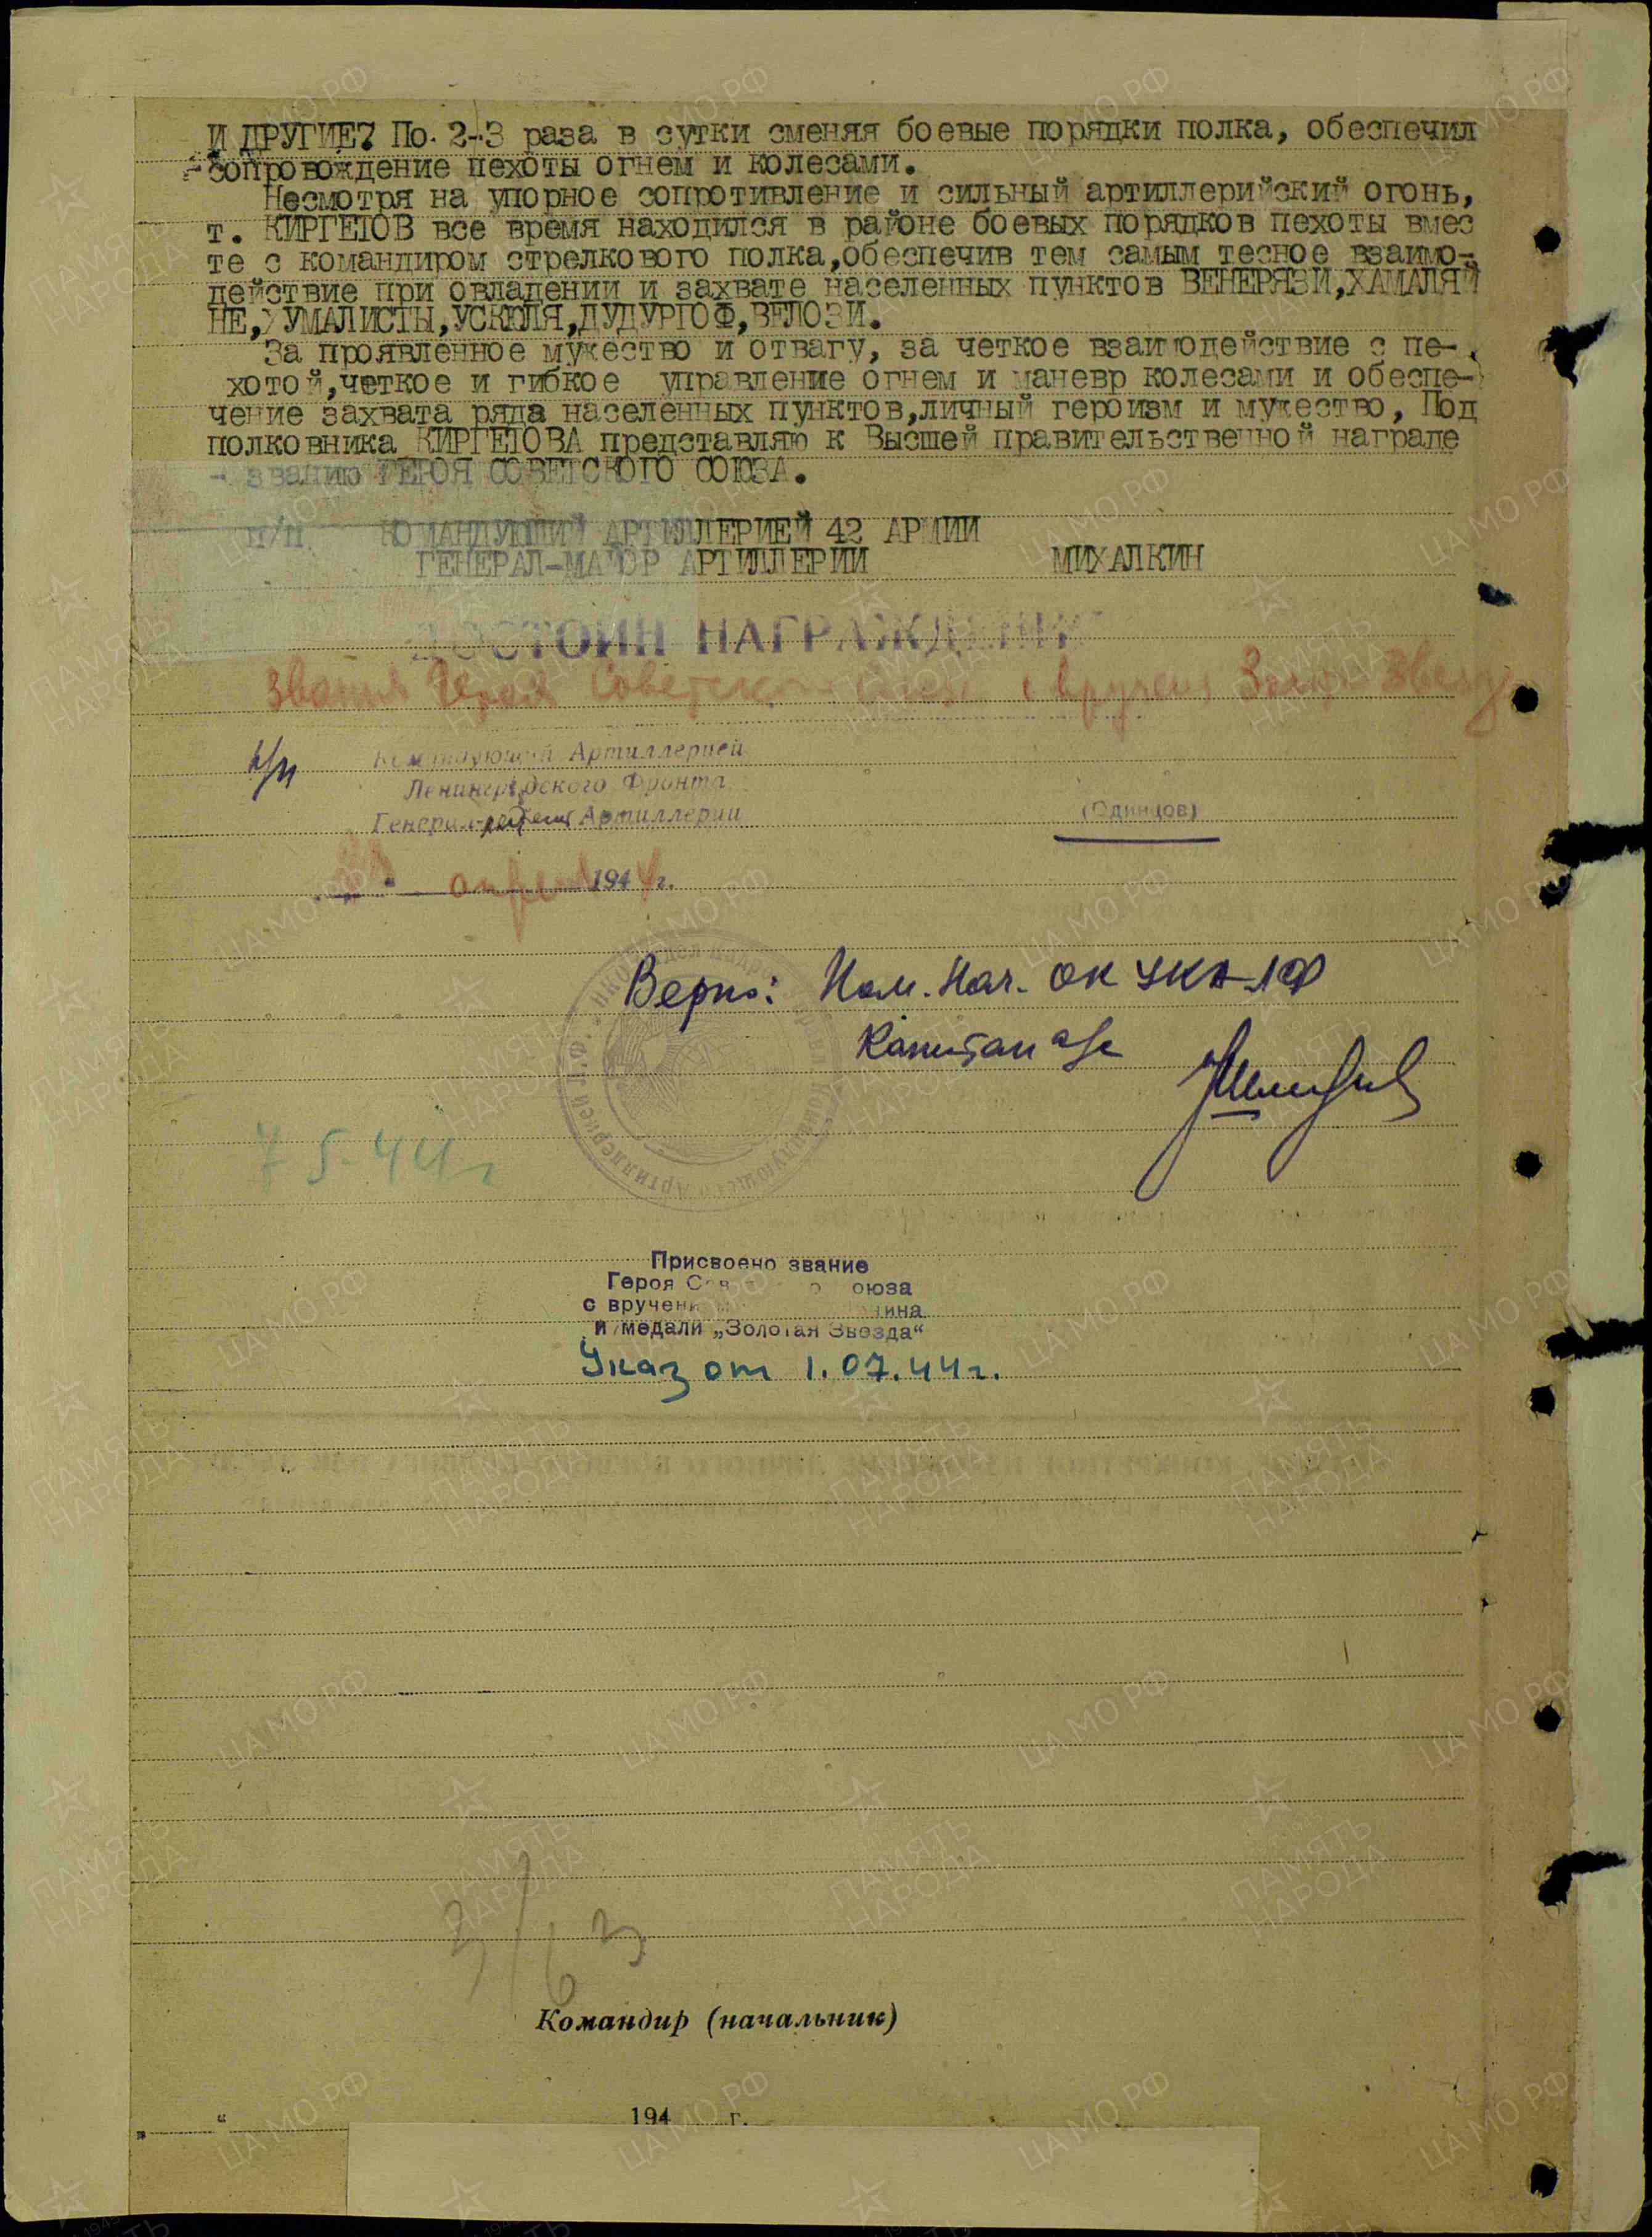 И ДРУГИЕ7 По. 2-3 раза в сутки сменяя боевые порядки полка, обеспечил
сопровождение пехоты огнем и колесами.
Несмотря на упорное сопротивление и сильный артиллерийский огонь,
т. КИРГЕТОВ все время находился в районе боевых порядков пехоты вмес
те с командиром стрелкового полка,обеспечив тем самым тесное взаимо-
действие при овладении и захвате населенных пунктов ВЕНЕРЯЗИ,ХАМАЛЯЙ
НЕ, УМАЛИСТЫ,УСКЮЛЯ,ДУДУРГОФ,ВЕЛОЗИ.
За проявленное мужество и отвагу, за четкое взаимодействие с пе-
хотой,четкое и гибкое управление огнем и маневр колесами и обеспе-
чение захвата ряда населенных пунктов,личный героизм и мужество, Под
полковника КИРГЕТОВА представляю к Высшей правительственной награде
- званию ГЕРОЯ СОВЕТСКОГО СОЮЗА.
п/п КОМАНДУЮЩИЙ АРТИЛЛЕРИЕЙ 42 АРМИИ
ГЕНЕРАЛ-МАЙОР АРТИЛЛЕРИИ МИХАЛКИН
ДОСТОИН НАГРАЖДЕНИЯ
звания Героя Советского Союза с вручен Золот Звезд
п/п Командующий Артиллерией
Ленинградского Фронта
Генерал-лейтен Артиллерии (Одинцов)
апреля 1944 г.
Верно: Пом. Нач. ОК УКА ЛФ
Капитан а/с
7 5.44г
Присвоено звание
Героя Сов о оюза
с вручени ина
и медали „Золотая Звезда“
Указ от 1.07.44г.
3/63
Командир (начальник)
„ “ 194 г.
ЦАМО РФ
ПАМЯТЬ
НАРОДА